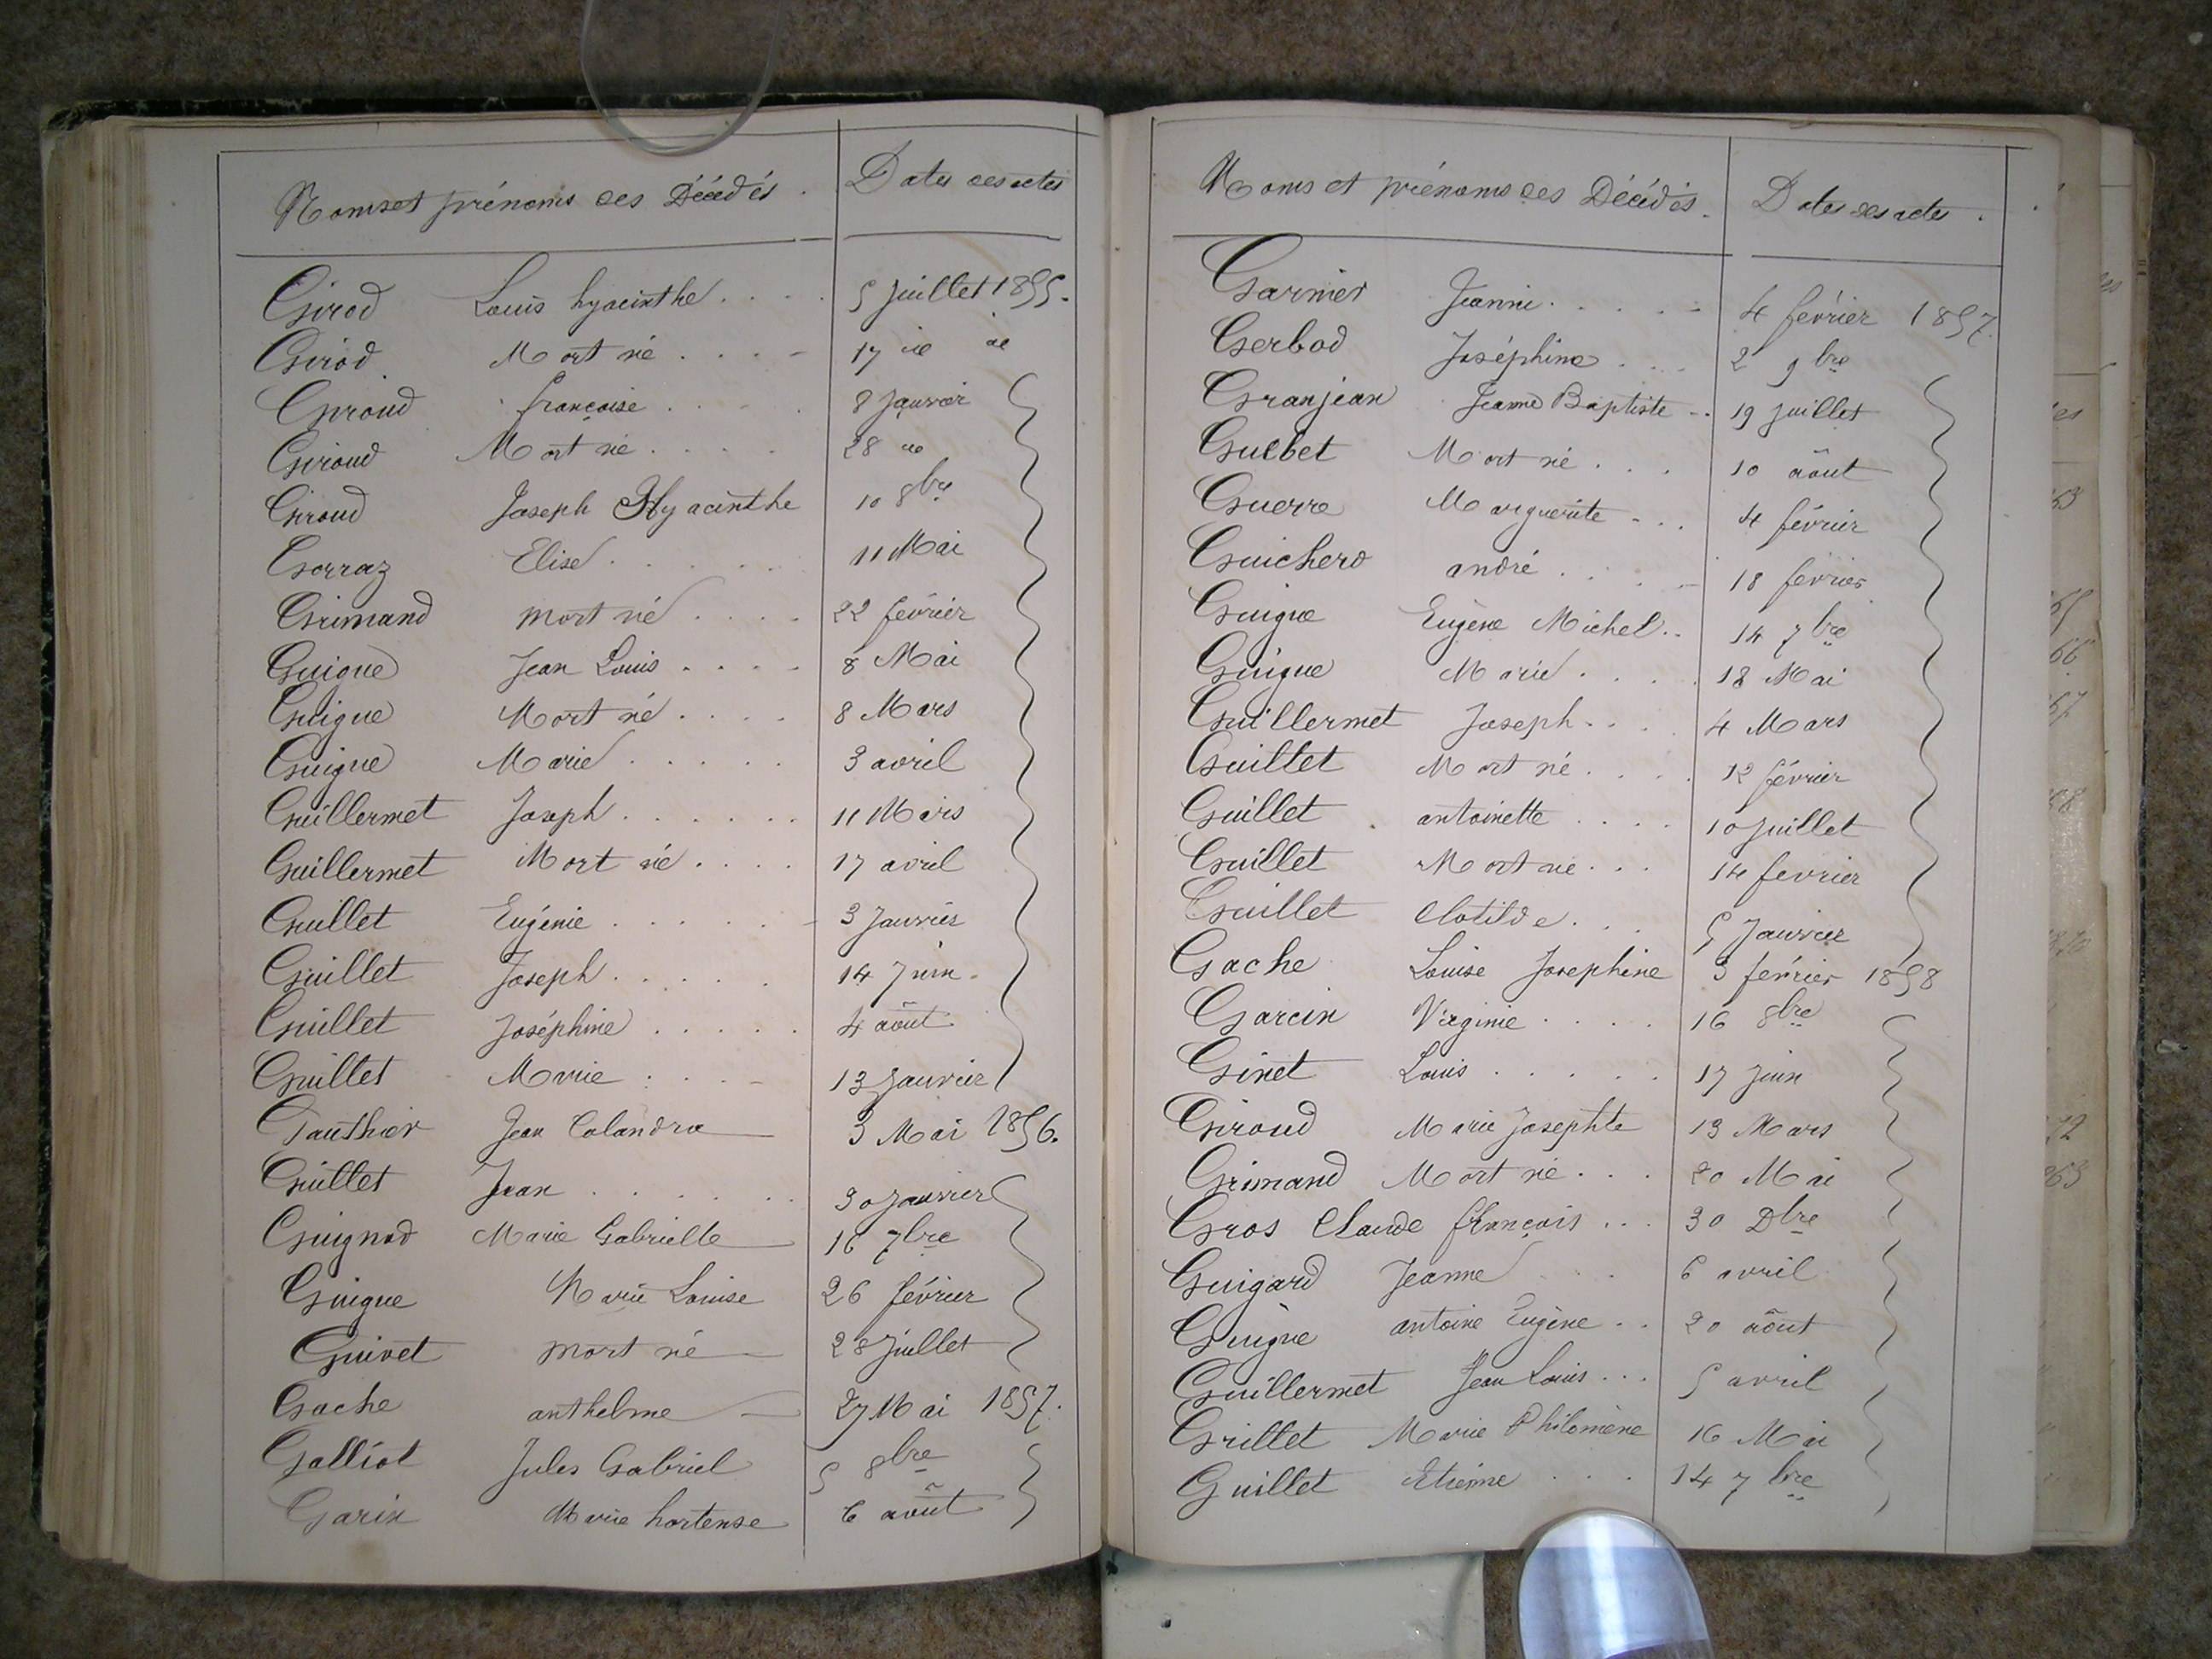 Noms et prénoms des Décédés. Dates des actes
Girod Louis hyacinthe . . . . 5 Juillet 1855.
Girod Mort né . . . . 17 de de
Giroud françoise . . . . 8 Janvier
Giroud Mort né . . . . 28 de
Giroud Joseph Hyacinthe 10 8bre
Gorraz Elise . . . . 11 Mai
Grimand mort né . . . . 22 février
Guigue Jean Louis . . . . 8 Mai
Guigue Mort né . . . . 8 Mars
Guigue Marie . . . . . 3 avril
Guillermet Joseph . . . . . . 11 Mars
Guillermet Mort né . . . . 17 avril
Guillet Eugénie . . . . . 3 Janvier
Guillet Joseph . . . . . 14 Juin
Guillet Joséphine . . . . . 4 août
Guillet Marie . . . . 13 Janvier
Gauthier Jean Colandre 3 Mai 1856.
Guillet Jean . . . . . . 30 Janvier
Guignod Marie Gabrielle 16 7bre
Guigue Marie Louise 26 février
Guivet mort né 28 Juillet
Gache anthelme 27 Mai 1857.
Galliot Jules Gabriel 5 8bre
Garin Marie hortense 6 août
Noms et prénoms des Décédés. Dates des actes.
Garnier Jeanne . . . . . 4 février 1857.
Gerbod Joséphine . . . 2 9bre
Granjean Jeanne Baptiste . . 19 Juillet
Guebet Mort né . . . 10 août
Guerre Marguerite . . . 4 février
Guicherd andré . . . . 18 février
Guigue Eugène Michel . . 14 7bre
Guigue Marie . . . . 18 Mai
Guillermet Joseph . . . 4 Mars
Guillet Mort né . . . . 12 février
Guillet antoinette . . . . 10 Juillet
Guillet Mort né . . . 14 fevrier
Guillet Clotilde . . . 5 Janvier
Gache Louise Josephine 3 février 1858
Garcin Virginie . . . . 16 8bre
Ginet Louis . . . . . 17 Juin
Giroud Marie Josephte 13 Mars
Grimand Mort né . . . 20 Mai
Gros Claude françois . . . 30 Dbre
Guigard Jeanne . . 6 avril
Guigue antoine Eugène . . 20 août
Guillermet Jean Louis . . . 5 avril
Grillet Marie Philomène 16 Mai
Guillet Etienne . . . 14 7bre